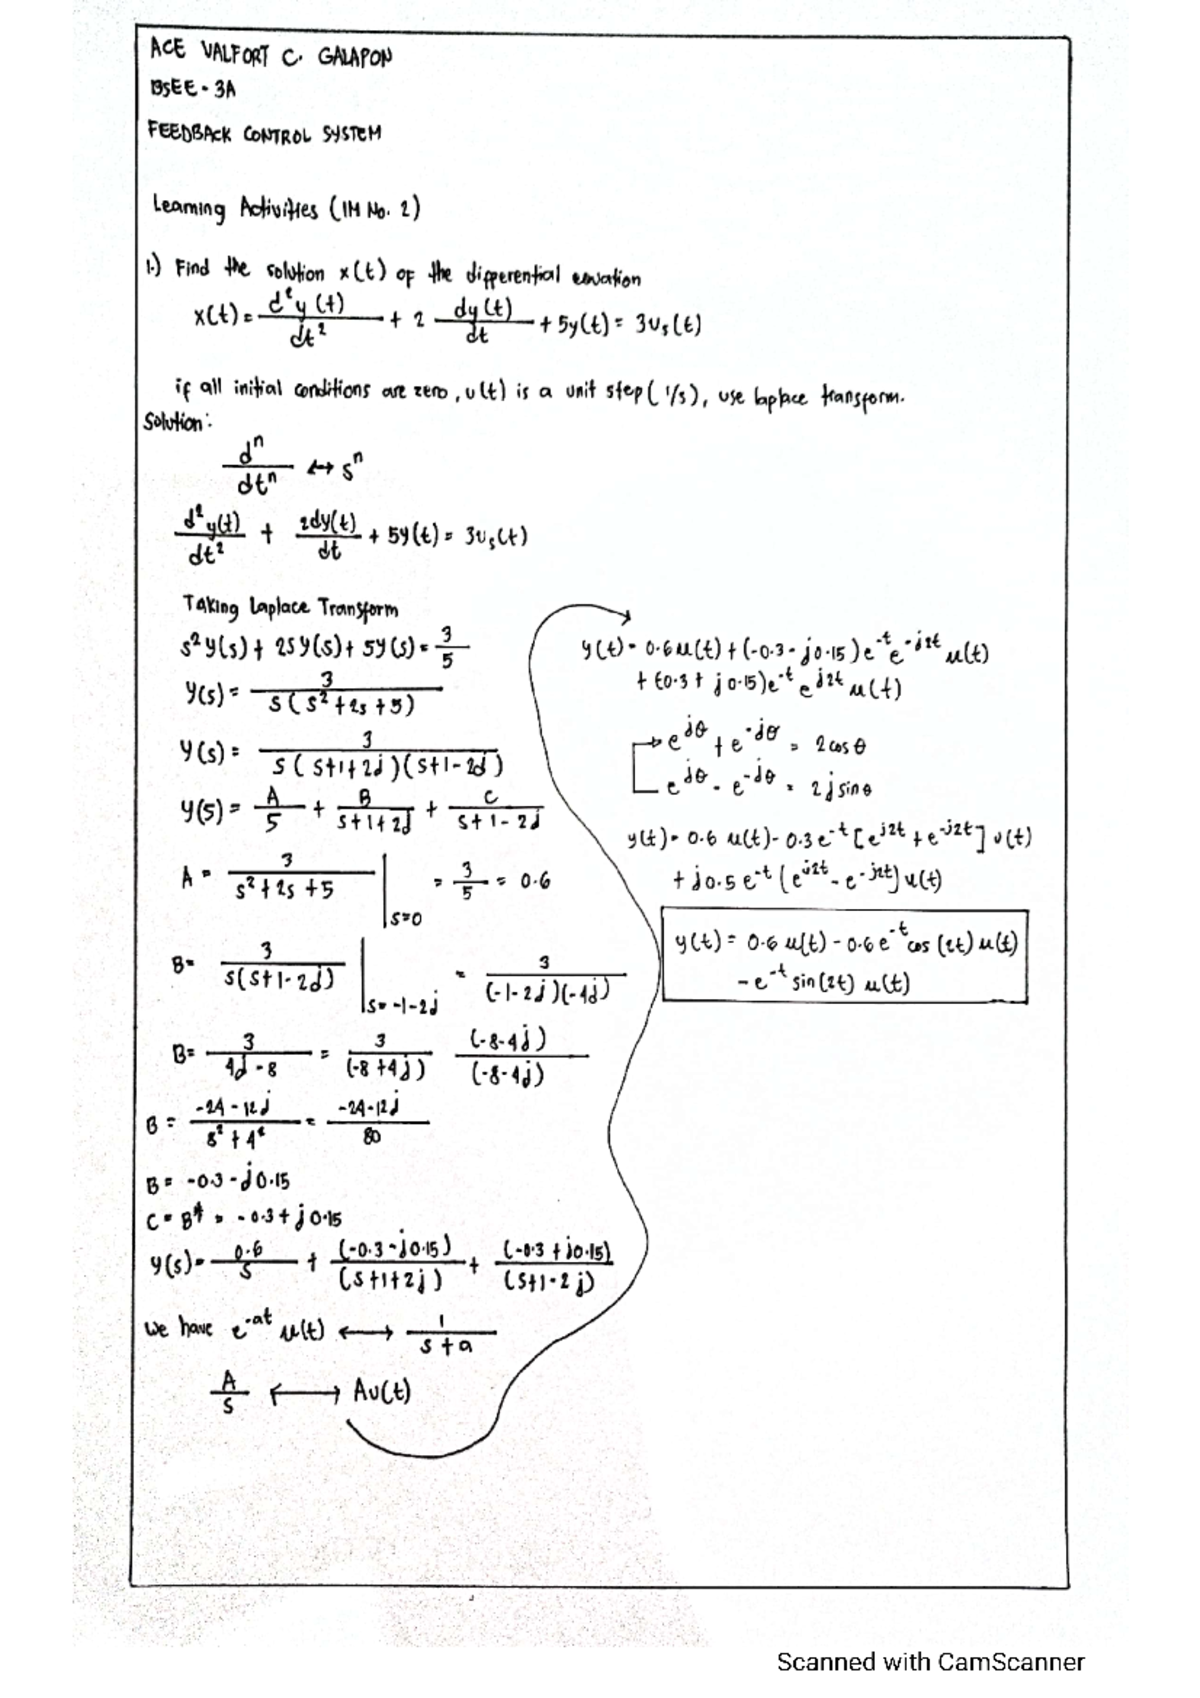 ACE VALFORT C. GALAPON
BSEE - 3A
FEEDBACK CONTROL SYSTEM
Learning Activities (IM No. 2)
1.) Find the solution x(t) of the differential equation
x(t) = d²y(t)/dt² + 2 dy(t)/dt + 5y(t) = 3us(t)
if all initial conditions are zero, u(t) is a unit step (1/s), use laplace transform.
Solution:
dⁿ/dtⁿ ↔ sⁿ
d²y(t)/dt² + 2dy(t)/dt + 5y(t) = 3us(t)
Taking Laplace Transform
s²y(s) + 2sy(s) + 5y(s) = 3/5
y(s) = 3/s(s² + 2s + 5)
y(s) = 3/s(s+1+2j)(s+1-2j)
y(5) = A/5 + B/s+1+2j + C/s+1-2j
A = 3/s²+2s+5 |s=0 = 3/5 = 0.6
B = 3/s(s+1-2j) |s=-1-2j = 3/(-1-2j)(-4j)
B = 3/4j-8 = 3/(-8+4j) (-8-4j)/(-8-4j)
B = -24-12j/8²+4² = -24-12j/80
B = -0.3 - j0.15
C = B* = -0.3 + j0.15
y(s) = 0.6/s + (-0.3-j0.15)/(s+1+2j) + (-0.3+j0.15)/(s+1-2j)
we have e^-at u(t) ⟷ 1/s+a
A/s ⟷ Au(t)
y(t) = 0.6u(t) + (-0.3-j0.15)e^-t e^-j2t u(t)
+ (-0.3+j0.15)e^-t e^j2t u(t)
e^jθ + e^-jθ = 2cosθ
e^jθ - e^-jθ = 2jsinθ
y(t) = 0.6 u(t) - 0.3e^-t [e^j2t + e^-j2t] u(t)
+ j0.5e^-t (e^j2t - e^-j2t) u(t)
y(t) = 0.6 u(t) - 0.6e^-t cos(2t) u(t)
- e^-t sin(2t) u(t)
Scanned with CamScanner